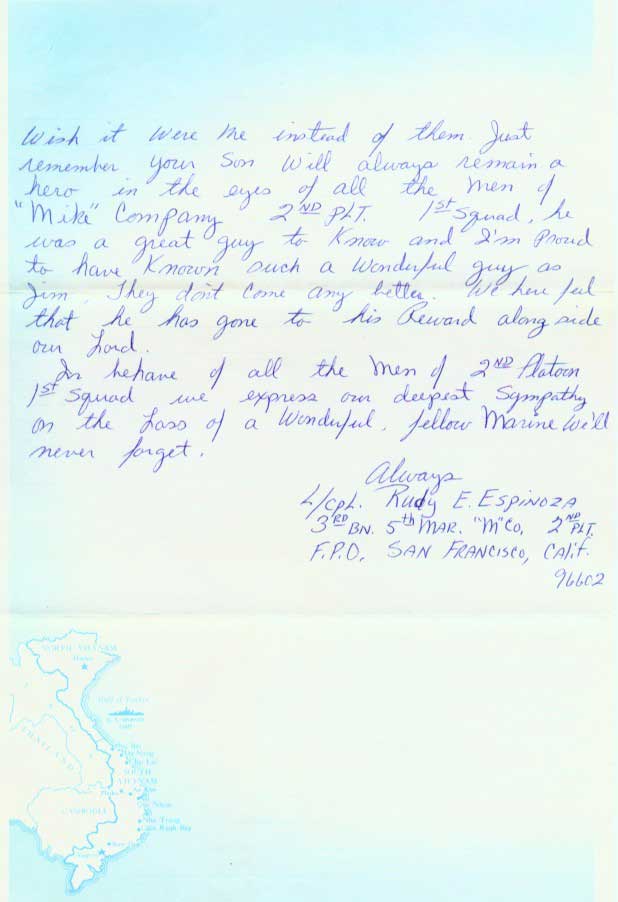 Wish it were me instead of them. Just
remember your Son Will always remain a
hero in the eyes of all the Men of
"Mike" Company 2ND PLT. 1st Squad, he
was a great guy to Know and I'm Proud
to have Known such a Wonderful guy as
Jim. They don't Come any better. We here feel
that he has gone to his Reward along side
our Lord.
In behave of all the Men of 2ND Platoon
1st Squad we express our deepest Sympathy
on the Loss of a Wonderful, fellow Marine We'll
never forget.
Always
L/CPL. Rudy E. ESPINOZA
3RD BN. 5th MAR. "M" CO. 2ND PLT.
F.P.O. SAN FRANCISCO, CALIF.
96602
NORTH VIETNAM
Hanoi
Gulf of Tonkin
THAILAND
Da Nang
Chu Lai
SOUTH
VIETNAM
CAMBODIA
Nha Trang
Cam Ranh Bay
Saigon